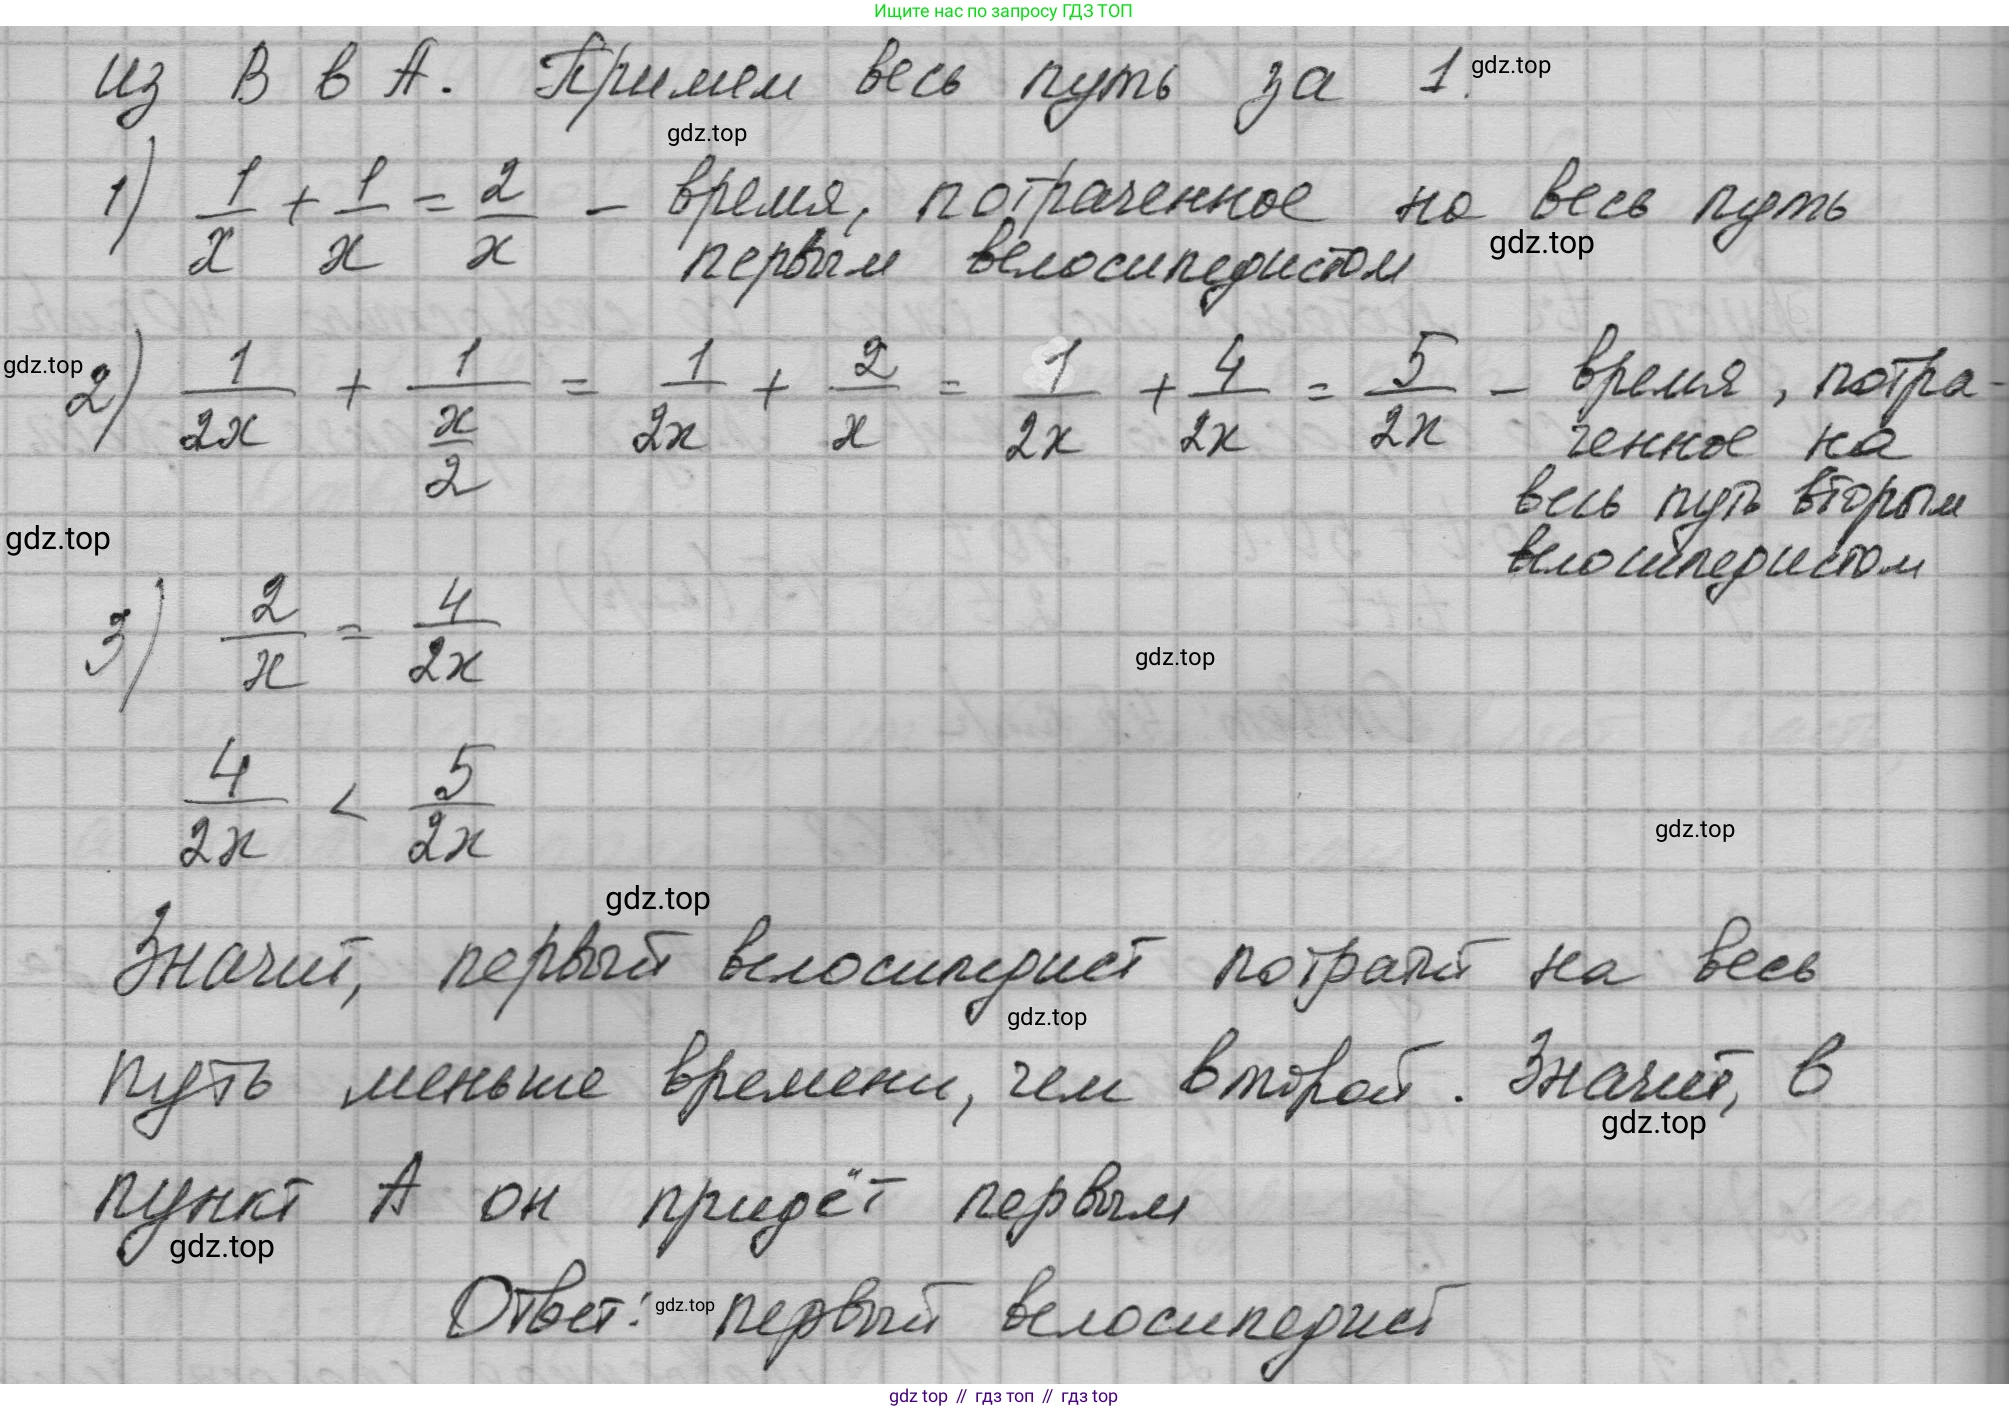 Ищите нас по запросу ГДЗ ТОП
из В в А. Примем весь путь за 1.
gdz.top
gdz.top
1) 1/x + 1/x = 2/x – время, потраченное на весь путь
gdz.top
первым велосипедистом
2) 1/2x + 1/(x/2) = 1/2x + 2/x = 1/2x + 4/2x = 5/2x – время, потра-
gdz.top
ченное на
весь путь вторым
gdz.top
велосипедистом
3) 2/x = 4/2x
gdz.top
4/2x < 5/2x
gdz.top
gdz.top
Значит, первый велосипедист потратит на весь
gdz.top
путь меньше времени, чем второй. Значит, в
gdz.top
пункт А он придёт первым
gdz.top
Ответ: первый велосипедист
gdz.top
gdz top // гдз топ // гдз top